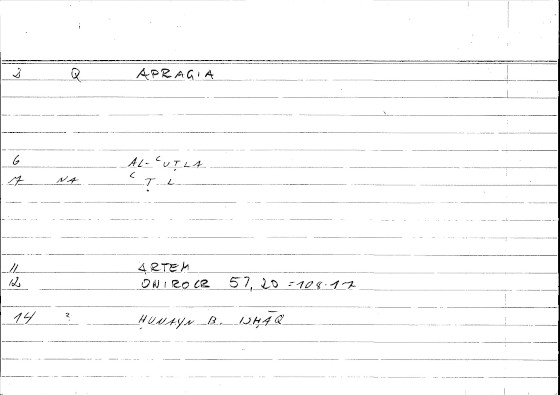 3 Q APRAGIA
6 AL-ʿUṬLA
7 NA ʿ Ṭ L
11 ARTEM
12 ONIROCR 57, 20 = 108.17
14 ² ḤUNAYN B. ISḤĀQ